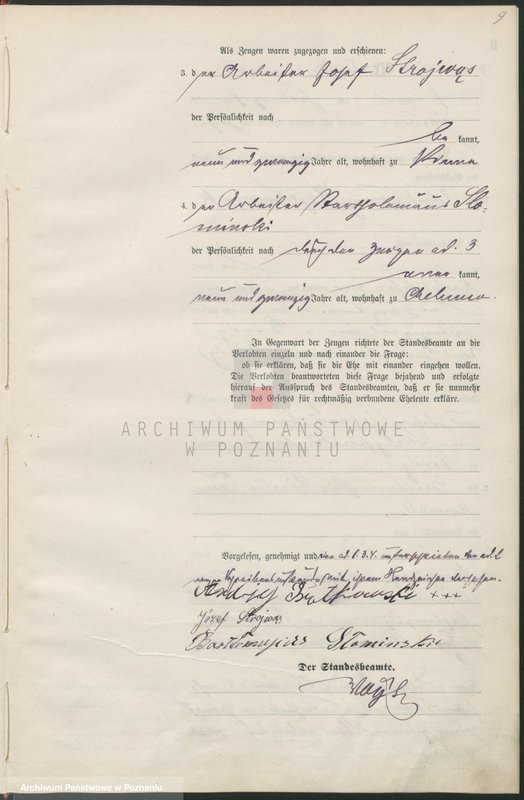 9
Als Zeugen waren zugezogen und erschienen:
3. der Arbeiter Josef Strojwąs
der Persönlichkeit nach
be kannt,
neun und zwanzig Jahre alt, wohnhaft zu
4. der Arbeiter Bartholomäus Sło-
minski
der Persönlichkeit nach durch den Zeugen ad. 3
aner kannt,
neun und zwanzig Jahre alt, wohnhaft zu Chelmno.
In Gegenwart der Zeugen richtete der Standesbeamte an die
Verlobten einzeln und nach einander die Frage:
ob sie erklären, daß sie die Ehe mit einander eingehen wollen.
Die Verlobten beantworteten diese Frage bejahend und erfolgte
hierauf der Ausspruch des Standesbeamten, daß er sie nunmehr
kraft des Gesetzes für rechtmäßig verbundene Eheleute erkläre.
ARCHIWUM PAŃSTWOWE
W POZNANIU
Vorgelesen, genehmigt und von ad. 1. 3. 4. unterschrieben von ad. 2
wegen Schreibensunkunde mit ihrem Handzeichen versehen.
+++
Józef Strojwąs
Słominski
Der Standesbeamte.
Archiwum Państwowe w Poznaniu